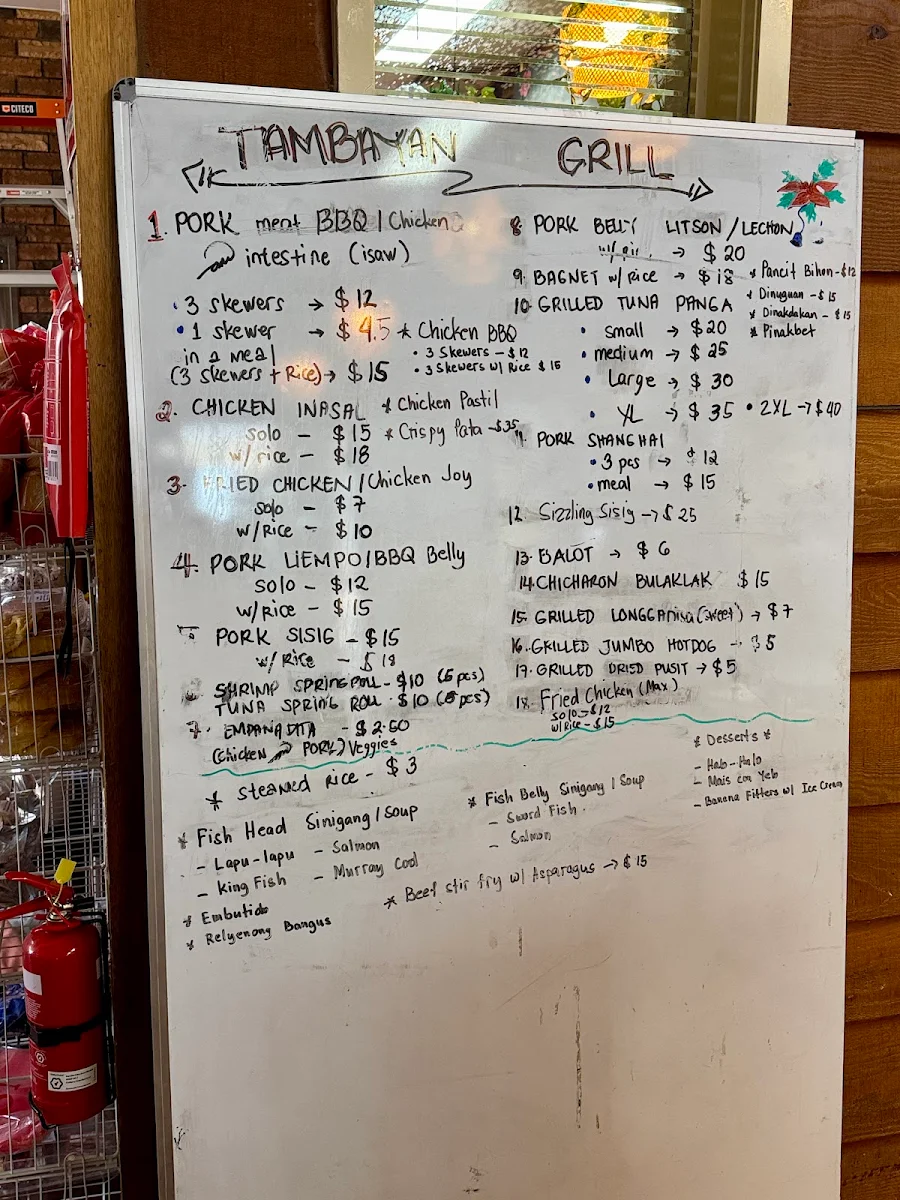 CITECO
TAMBAYAN GRILL
1. PORK meat BBQ / Chicken
intestine (isaw)
• 3 skewers → $12
• 1 skewer → $4.5
in a meal
(3 skewers + Rice) → $15
* Chicken BBQ
• 3 Skewers – $12
• 3 Skewers w/ Rice $15
2. CHICKEN INASAL
solo – $15
w/rice – $18
* Chicken Pastil
* Crispy Pata – $35
3. FRIED CHICKEN / Chicken Joy
solo – $7
w/Rice – $10
4. PORK LIEMPO / BBQ Belly
solo – $12
w/Rice – $15
PORK SISIG – $15
w/Rice – $18
SHRIMP SPRING ROLL – $10 (6 pcs)
TUNA SPRING ROLL $10 (6 pcs)
7. EMPANADITA – $2.50
(Chicken PORK) Veggies
* steamed rice – $3
8. PORK BELLY LITSON / LECHON
→ $20
9. BAGNET w/ Rice → $18
10. GRILLED TUNA PANGA
• small → $20
• medium → $25
• Large → $30
• XL → $35 • 2XL → $40
* Pancit Bihon – $12
* Dinuguan – $15
* Dinakdakan – $15
* Pinakbet
11. PORK SHANGHAI
• 3 pcs → $12
• meal → $15
12. Sizzling Sisig → $25
13. BALOT → $6
14. CHICHARON BULAKLAK $15
15. GRILLED LONGGANISA (sweet) → $7
16. GRILLED JUMBO HOTDOG → $5
17. GRILLED DRIED PUSIT → $5
18. Fried Chicken (Max)
solo → $12
w/ Rice – $15
* Fish Head Sinigang / Soup
– Lapu-lapu – Salmon
– King Fish – Murray Cod
* Embutido
* Relyenong Bangus
* Fish Belly Sinigang / Soup
– Sword Fish
– Salmon
* Beef stir fry w/ Asparagus → $15
* Desserts *
– Halo-Halo
– Mais con Yelo
– Banana Fitters w/ Ice Cream